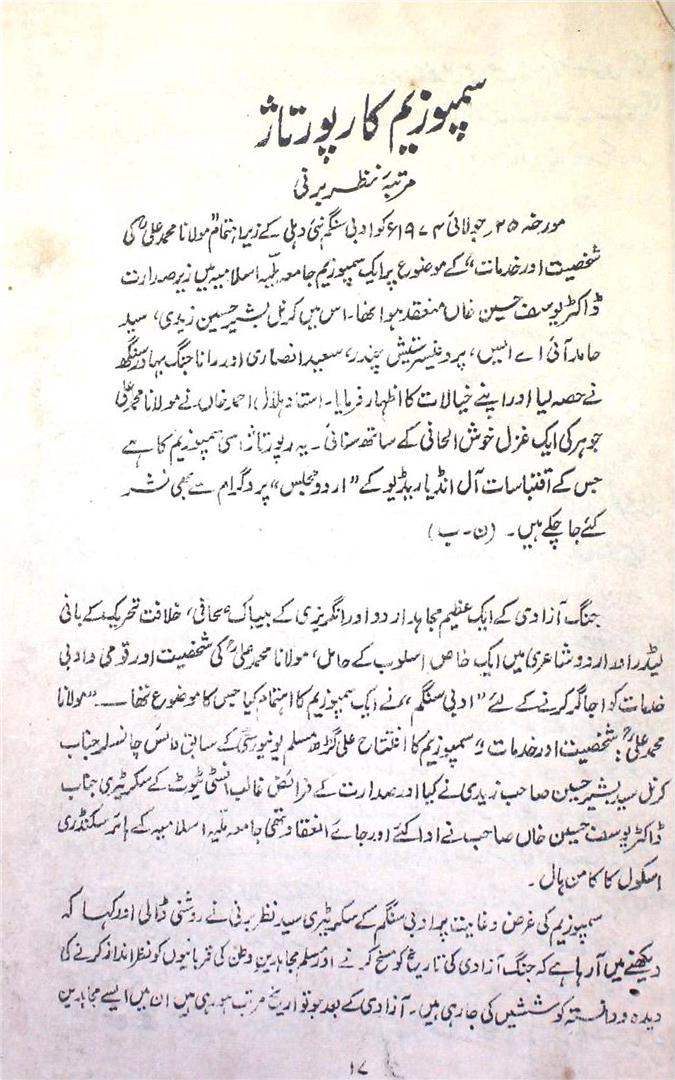 سمپوزیم کا رپورتاژ
مرتبہ نظر برنی
مورخہ ۲۵؍جولائی ۱۹۷۴ء کو ادبی سنگم نئی دہلی کے زیر اہتمام "مولانا محمد علیؒ کی
شخصیت اور خدمات" کے موضوع پر ایک سمپوزیم جامعہ ملیہ اسلامیہ میں زیر صدارت
ڈاکٹر یوسف حسین خاں منعقد ہوا تھا۔ اس میں کرنل بشیر حسین زیدی، سید
حامد آئی اے ایس، پروفیسر ستیش چندر، سعید انصاری اور رانا جنگ بہادر سنگھ
نے حصہ لیا اور اپنے خیالات کا اظہار فرمایا۔ استاد ہلال احمد خاں نے مولانا محمد علی
جوہر کی ایک غزل خوش الحانی کے ساتھ سنائی۔ یہ رپورتاژ اسی سمپوزیم کا ہے
جس کے اقتباسات آل انڈیا ریڈیو کے "اردو مجلس" پروگرام سے بھی نشر
کئے جا چکے ہیں۔ (ن۔ب)
جنگ آزادی کے ایک عظیم مجاہد اردو اور انگریزی کے بیباک صحافی، خلافت تحریک کے بانی
لیڈر اور اردو شاعری میں ایک خاص اسلوب کے حامل، مولانا محمد علیؒ کی شخصیت اور قومی و ادبی
خدمات کو اجاگر کرنے کے لئے "ادبی سنگم" نے ایک سمپوزیم کا اہتمام کیا جس کا موضوع تھا — "مولانا
محمد علیؒ: شخصیت اور خدمات"۔ سمپوزیم کا افتتاح علی گڑھ مسلم یونیورسٹی کے سابق وائس چانسلر جناب
کرنل سید بشیر حسین صاحب زیدی نے کیا اور صدارت کے فرائض غالب انسٹی ٹیوٹ کے سکریٹری جناب
ڈاکٹر یوسف حسین خاں صاحب نے ادا کئے اور جائے انعقاد تھی جامعہ ملیہ اسلامیہ کے ہائر سکنڈری
اسکول کا کامن ہال۔
سمپوزیم کی غرض و غایت پر ادبی سنگم کے سکریٹری سید نظر برنی نے روشنی ڈالی اور کہا کہ
دیکھنے میں آرہا ہے کہ جنگ آزادی کی تاریخ کو مسخ کرنے اور مسلم مجاہدین وطن کی قربانیوں کو نظر انداز کرنے کی
دیدہ و دانستہ کوششیں کی جارہی ہیں۔ آزادی کے بعد جو تواریخ مرتب ہورہی ہیں ان میں ایسے مجاہدین
۱۷